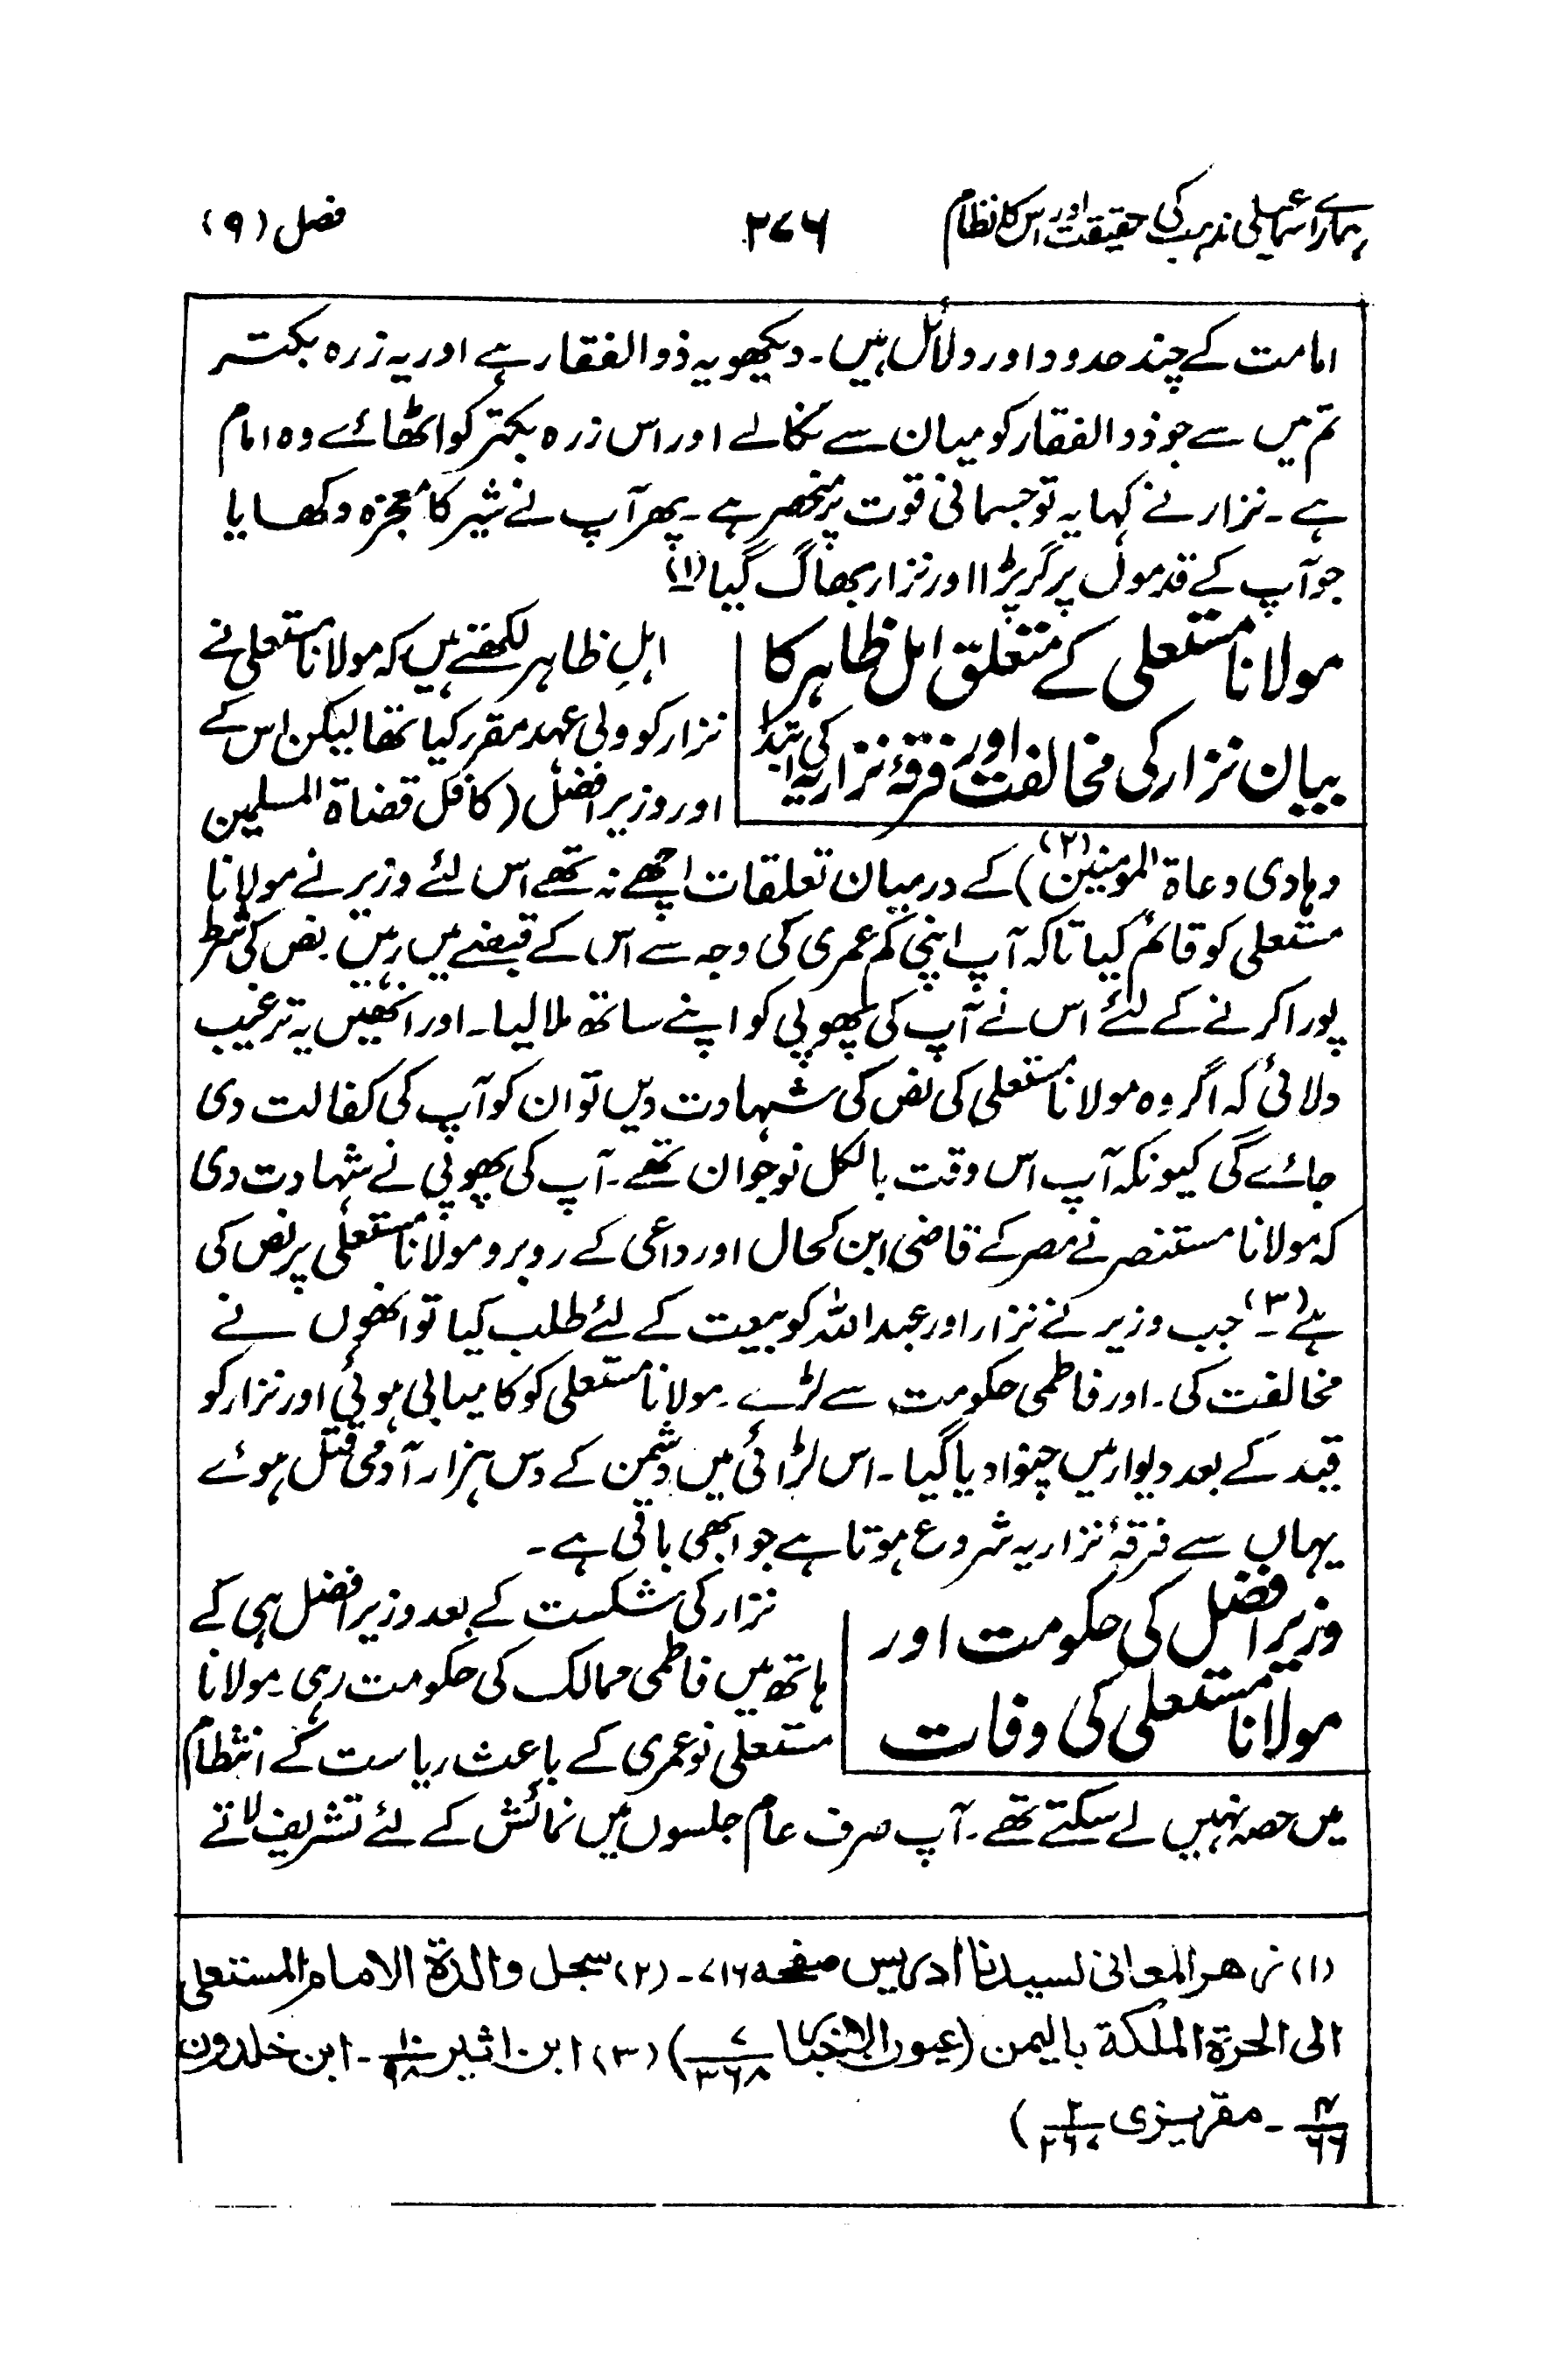 ہمارے اسماعیلی مذہب کی حقیقت اور اس کا نظام ۲۷۶ فصل (۹)
امامت کے چند حدود اور دلائل ہیں۔ دیکھو یہ ذوالفقار ہے اور یہ زرہ بکتر
تم میں سے جو ذوالفقار کو میان سے نکالے اور اس زرہ بکتر کو اٹھائے وہ امام
ہے۔ نزار نے کہا یہ تو جسمانی قوت پر منحصر ہے۔ پھر آپ نے شیر کا معجزہ دکھایا
جو آپ کے قدموں پر گر پڑا اور نزار بھاگ گیا (۱)
مولانا مستعلی کے متعلق اہل ظاہر کا
بیان نزار کی مخالفت اور فرقۂ نزاریہ کی ابتدا
اہلِ ظاہر لکھتے ہیں کہ مولانا مستعلی نے
نزار کو ولی عہد مقرر کیا تھا لیکن اس کے
اور وزیر افضل (کافل قضاۃ المسلمین
وہادی دعاۃ المومنین (۲)) کے درمیان تعلقات اچھے نہ تھے اس لئے وزیر نے مولانا
مستعلی کو قائم کیا تاکہ آپ اپنی کم عمری کی وجہ سے اس کے قبضے میں رہیں۔ نص کی شرط
پورا کرنے کے لئے اس نے آپ کی پھوپی کو اپنے ساتھ ملا لیا۔ اور انھیں یہ ترغیب
دلائی کہ اگر وہ مولانا مستعلی کی نص کی شہادت دیں تو ان کو آپ کی کفالت دی
جائے گی کیونکہ آپ اس وقت بالکل نوجوان تھے۔ آپ کی پھوپی نے شہادت دی
کہ مولانا مستنصر نے مصر کے قاضی ابن کحال اور داعی کے روبرو مولانا مستعلی پر نص کی
ہے (۳)۔ جب وزیر نے نزار اور عبداللہ کو بیعت کے لئے طلب کیا تو انھوں نے
مخالفت کی۔ اور فاطمی حکومت سے لڑے۔ مولانا مستعلی کو کامیابی ہوئی اور نزار کو
قید کے بعد دیوار میں چنوا دیا گیا۔ اس لڑائی میں دشمن کے دس ہزار آدمی قتل ہوئے
یہاں سے فرقۂ نزاریہ شروع ہوتا ہے جو ابھی باقی ہے۔
وزیر افضل کی حکومت اور
مولانا مستعلی کی وفات
نزار کی شکست کے بعد وزیر افضل ہی کے
ہاتھ میں فاطمی ممالک کی حکومت رہی۔ مولانا
مستعلی نو عمری کے باعث ریاست کے انتظام
میں حصہ نہیں لے سکتے تھے۔ آپ صرف عام جلسوں میں نمائش کے لئے تشریف لاتے
(۱) زهر المعانی لسیدنا ادریس صفحه ۷۱۶۵۔ (۲) سجل والدة الامام المستعلی
الی الحرة الملکة بالیمن (عیون الاخبار ۷/۳۶۸) (۳) ابن اثیر ۱۰/۹۸۔ ابن خلدون
۴/۶۶۔ مقریزی ۲/۲۶۷)